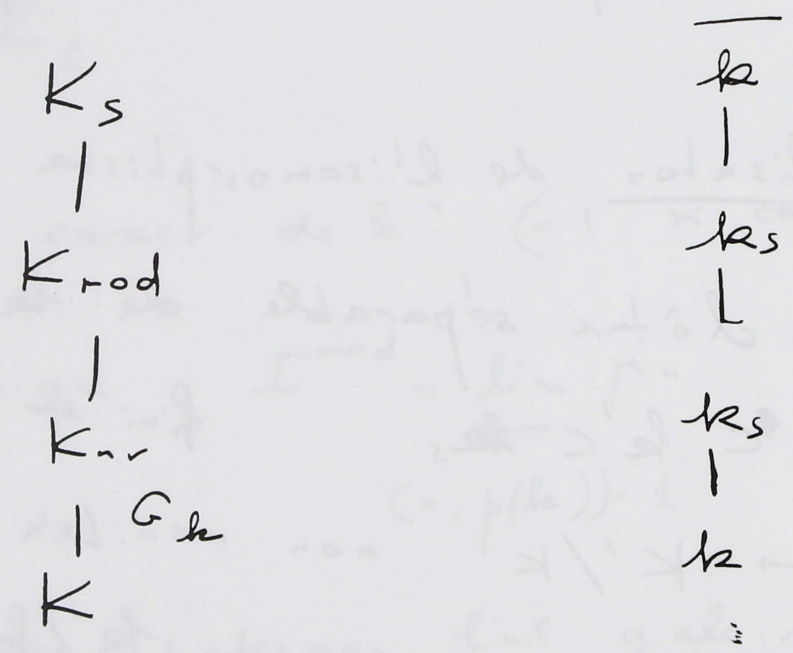 K_s
K_mod
K_nr
G_k
K
k̅
k_s
k_s
k